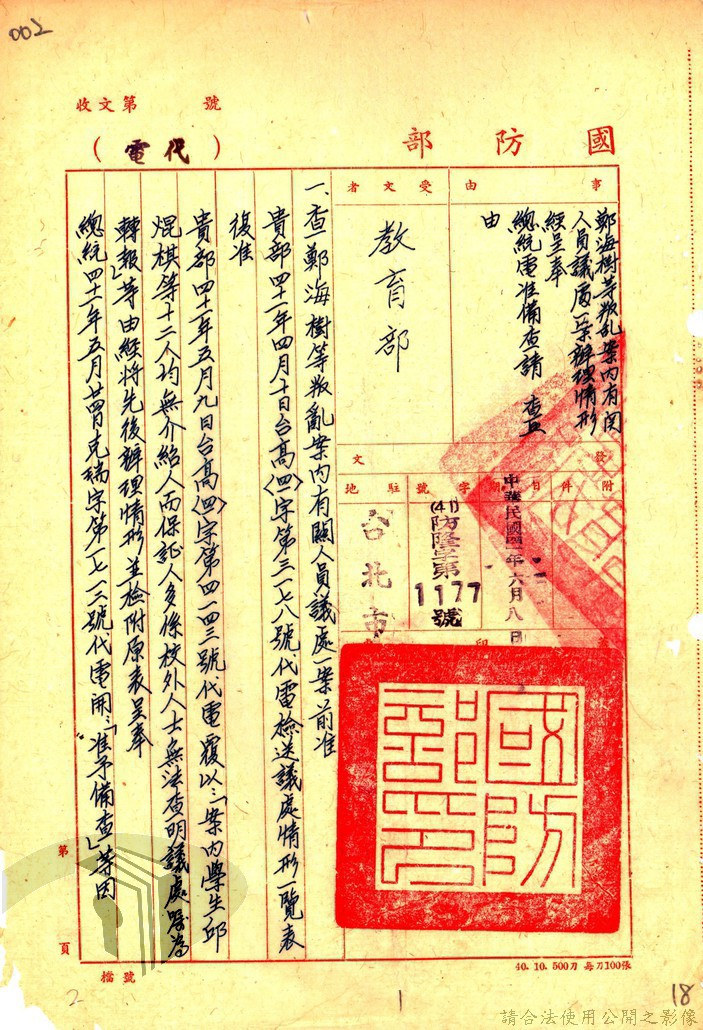 002
收文第　　號
國防部
（代電）
事由
鄭海樹等叛乱案內有関
人員議處一案辦理情形
經呈奉
總統電准備查請　查照
由
受文者
教育部
發文
附件
日期
中華民國四一年六月八日
字號
(41)防隆字第
1177
號
駐地
台北市
印
國防部印
一、查鄭海樹等叛亂案內有關人員議處一案前准
貴部四十一年四月十日台高〈四〉字第三一七八號代電檢送議處情形一覽表
復准
貴部四十一年五月九日台高〈四〉字第四一四三號代電覆以：「案內學生邱
焜棋等十二人均無介紹人而保証人多係校外人士無法查明議處囑為
轉報」等由經將先後辦理情形並檢附原表呈奉
總統四十一年五月廿四日克瑞字第一七一三號代電開：「准予備查」等因
第
頁
檔號
40. 10. 500刀 每刀100張
2
1
18
請合法使用公開之影像